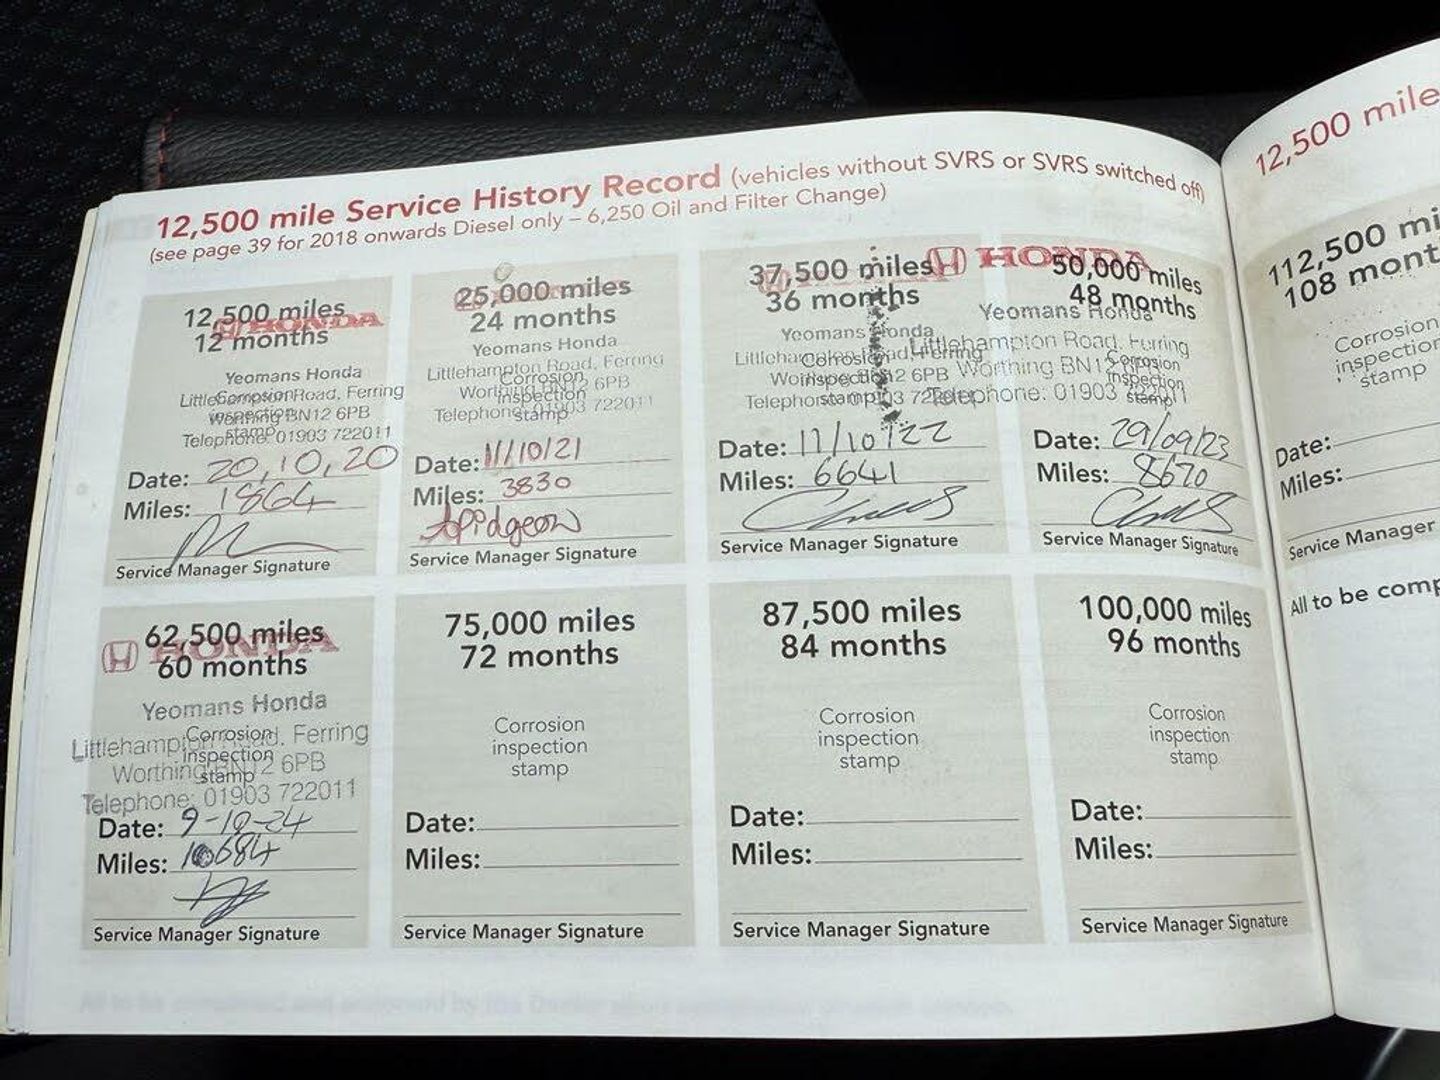 12,500 mile Service History Record (vehicles without SVRS or SVRS switched off)
(see page 39 for 2018 onwards Diesel only – 6,250 Oil and Filter Change)
12,500 miles
12 months
HONDA
Yeomans Honda
Littlehampton Road, Ferring
Worthing BN12 6PB
Telephone: 01903 722011
Corrosion
inspection
stamp
Date: 20,10,20
Miles: 1864
Service Manager Signature
25,000 miles
24 months
Yeomans Honda
Littlehampton Road, Ferring
Worthing BN12 6PB
Telephone: 01903 722011
Corrosion
inspection
stamp
Date: 11/10/21
Miles: 3830
Apidgeon
Service Manager Signature
37,500 miles
36 months
Yeomans Honda
Littlehampton Road, Ferring
Worthing BN12 6PB
Telephone: 01903 722011
Corrosion
inspection
stamp
Date: 11/10/22
Miles: 6641
Service Manager Signature
50,000 miles
48 months
HONDA
Yeomans Honda
Littlehampton Road, Ferring
Worthing BN12 6PB
Telephone: 01903 722011
Corrosion
inspection
stamp
Date: 29/09/23
Miles: 8670
Service Manager Signature
62,500 miles
60 months
HONDA
Yeomans Honda
Littlehampton Road, Ferring
Worthing BN12 6PB
Telephone: 01903 722011
Corrosion
inspection
stamp
Date: 9-10-24
Miles: 10684
Service Manager Signature
75,000 miles
72 months
Corrosion
inspection
stamp
Date:
Miles:
Service Manager Signature
87,500 miles
84 months
Corrosion
inspection
stamp
Date:
Miles:
Service Manager Signature
100,000 miles
96 months
Corrosion
inspection
stamp
Date:
Miles:
Service Manager Signature
12,500 mile
112,500 mi
108 mont
Corrosion
inspection
stamp
Date:
Miles:
Service Manager
All to be comp